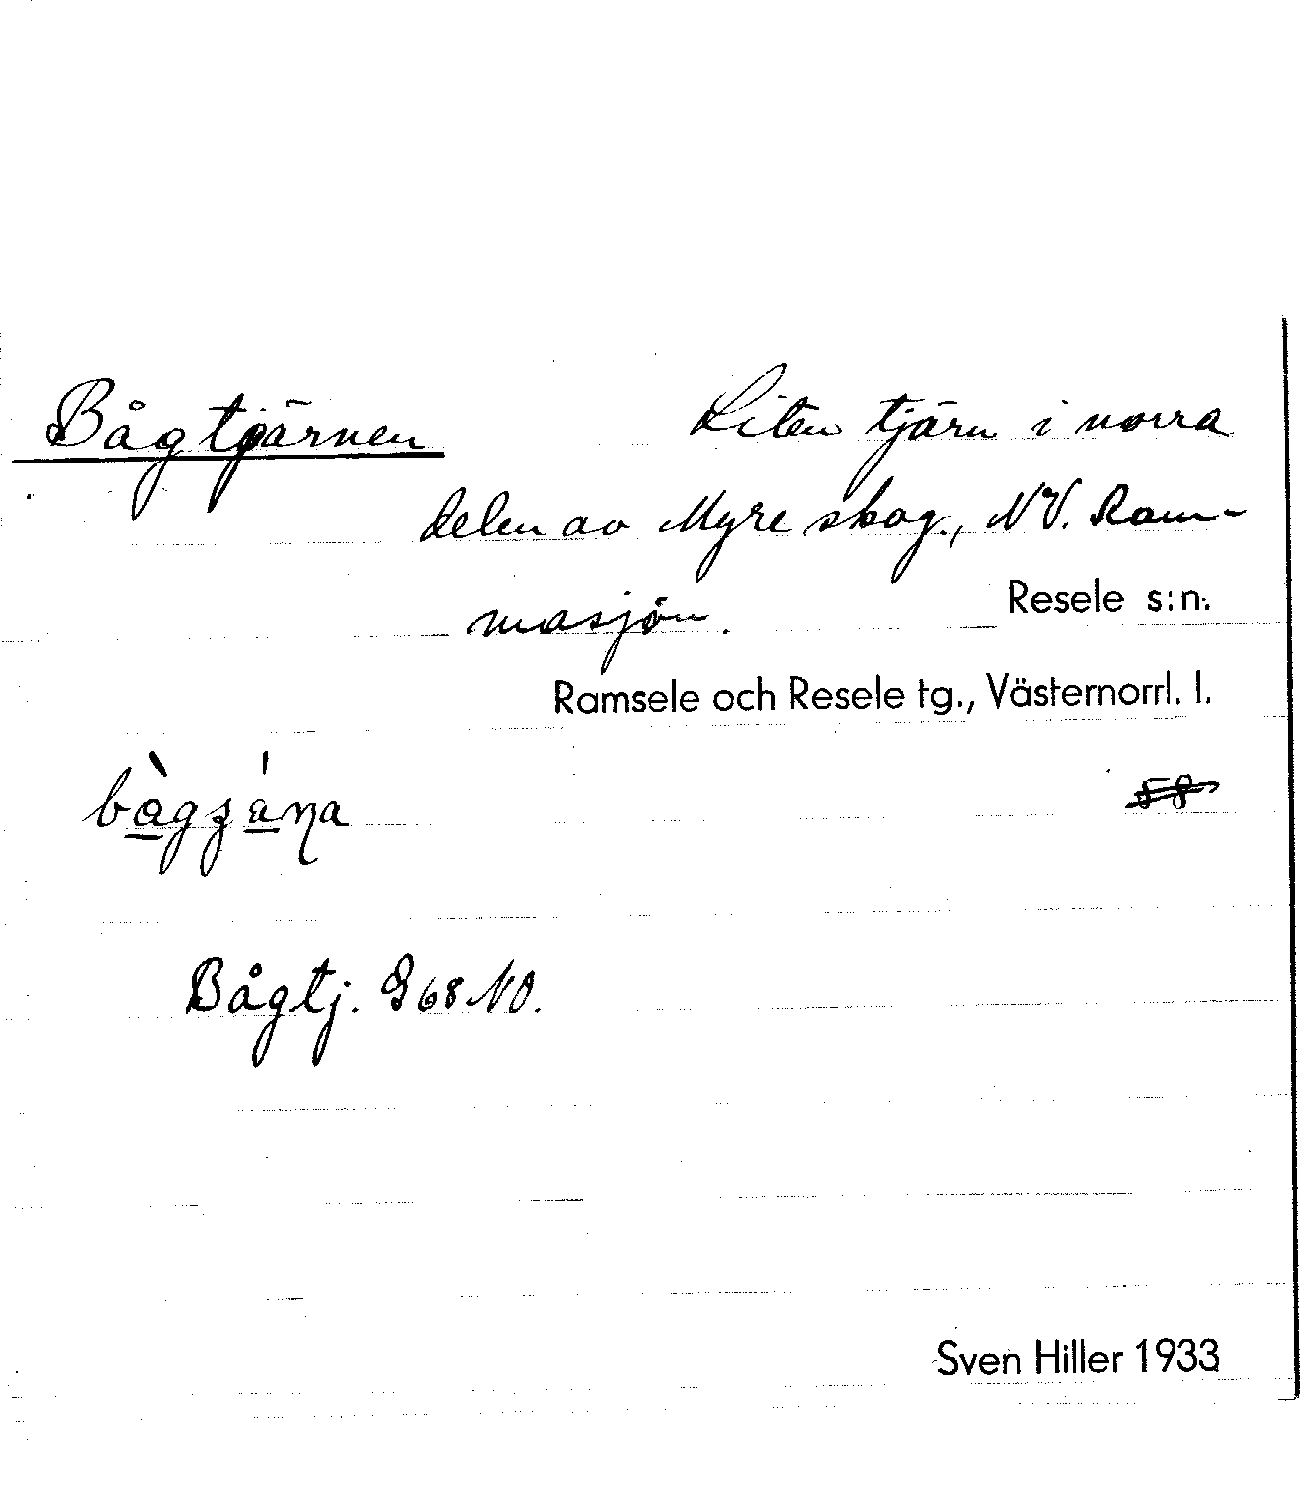 Bågtjärnen Liten tjärn i norra
delen av Myre skog., NV. Ram-
masjön. Resele s:n.
Ramsele och Resele tg., Västernorrl. l.
58
Bågtj. G 68 NO.
Sven Hiller 1933